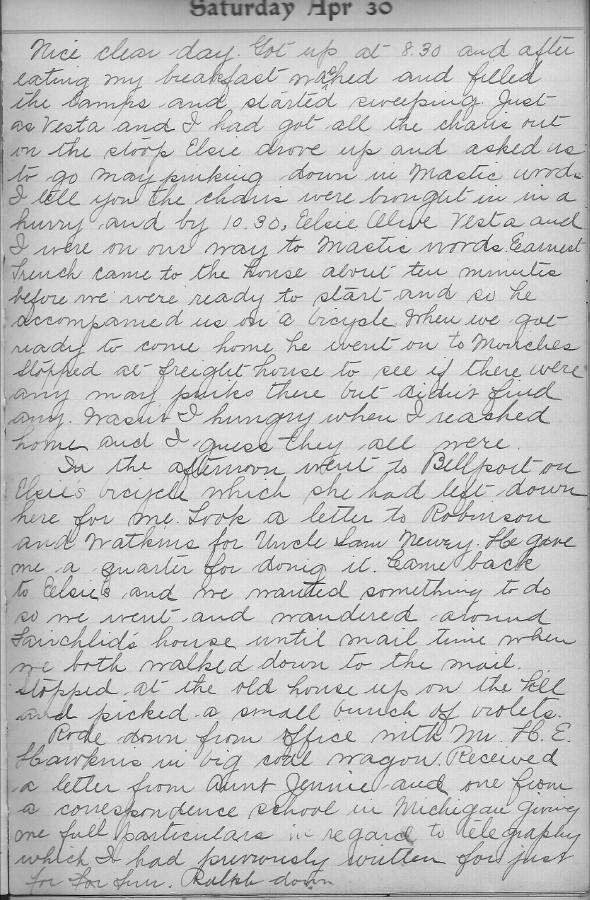 Saturday Apr 30
Nice clear day. Got up at 8.30 and after
eating my breakfast washed and filled
the lamps and started sweeping. Just
as Vesta and I had got all the chairs out
on the stoop Elsie drove up and asked us
to go maypinking down in Mastic woods
I tell you the chairs were brought in in a
hurry and by 10.30, Elsie Olive Vesta and
I were on our way to Mastic woods. Earnest
French came to the house about ten minutes
before we were ready to start and so he
accompanied us on a bicycle. When we got
ready to come home he went on to Moriches
Stopped at freight house to see if there were
any may pinks there but didn't find
any. Wasn't I hungry when I reached
home and I guess they all were.
In the afternoon went to Bellport on
Elsie's bicycle which she had left down
here for me. Took a letter to Robinson
and Watkins for Uncle Sam Newey. He gave
me a quarter for doing it. Came back
to Elsie's and we wanted something to do
so we went and wandered around
Fairchlid's house until mail time when
we both walked down to the mail.
stopped at the old house up on the hill
and picked a small bunch of violets.
Rode down from office with Mr. H. E.
Hawkins in big coal wagon. Received
a letter from Aunt Jennie and one from
a correspondence school in Michigan giving
me full particulars in regard to telegraphy
which I had previously written for just
for fun. Ralph down